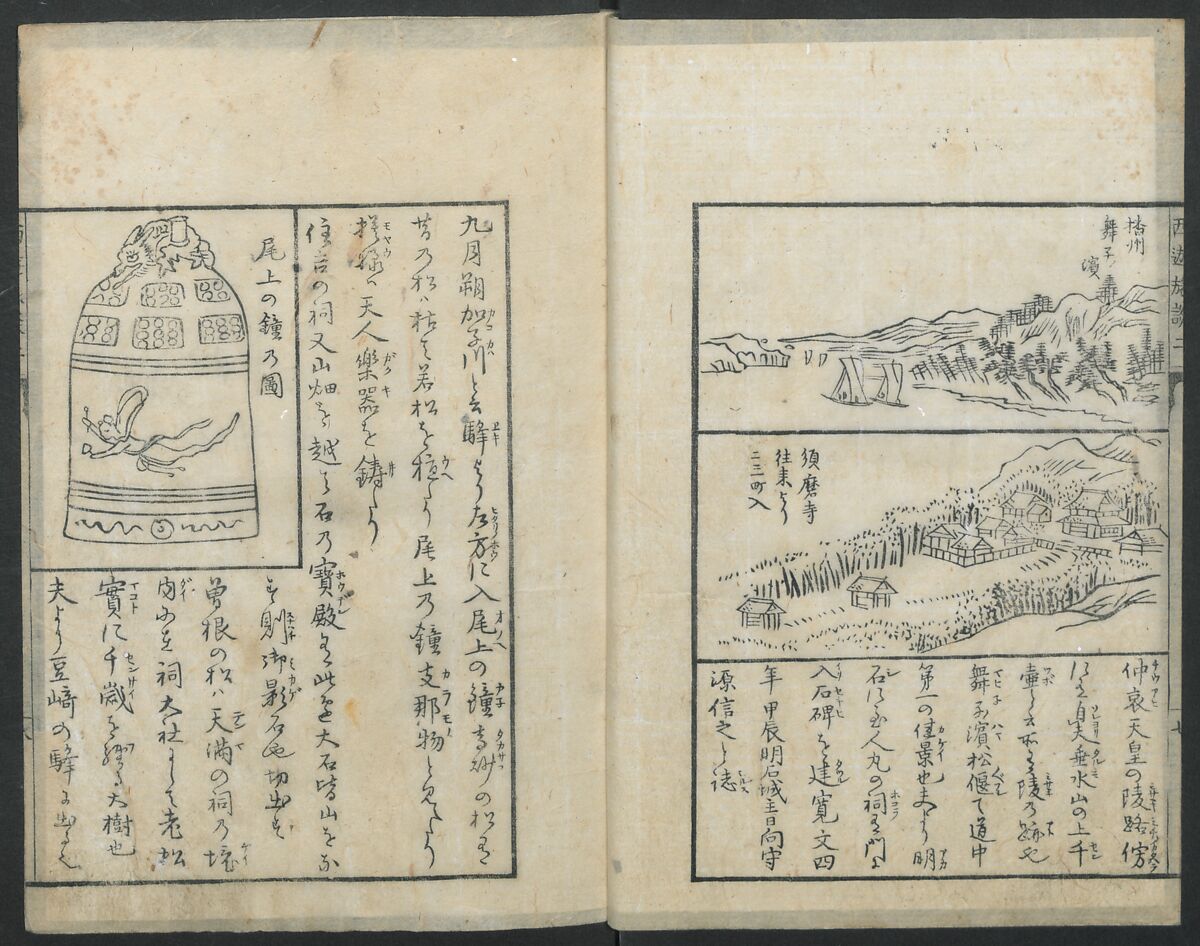 西遊旅譚二
十七
播州
舞子ノ濱
須磨寺
往来より
二三町入
仲哀天皇の陵路傍
にあり自夫垂水山の上千
壷と云所あり陵の跡也
舞子濱松偃て道中
第一の佳景也夫より明
石に至人丸の祠あり門に
入石碑を建寛文四
年甲辰明石城主日向守
源信之と誌
九月朔加子川と云驛より左方に入尾上の鐘高砂の松有
昔の松ハ枯て若松を植たり尾上の鐘支那物と見たり
摸様ハ天人樂器を鋳たり
住吉の祠又山畑を越て石の寶殿あり此邊大石皆山をな
す則御影石也切出す
尾上の鐘乃圖
曽根の松ハ天満の祠の境
内に在祠大社にして老松
實に千歳を經る大樹也
夫より豆﨑の驛に出る